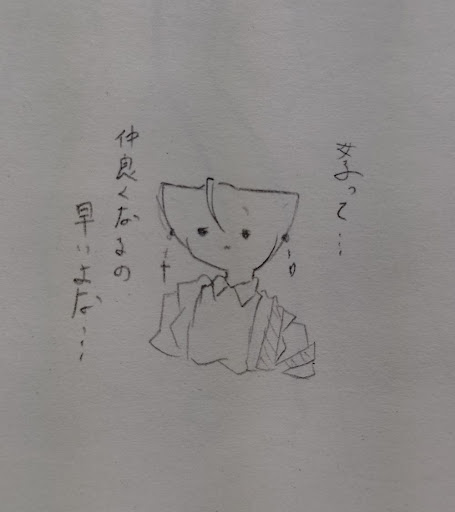 女子って…
仲良くなるの
早いよな…